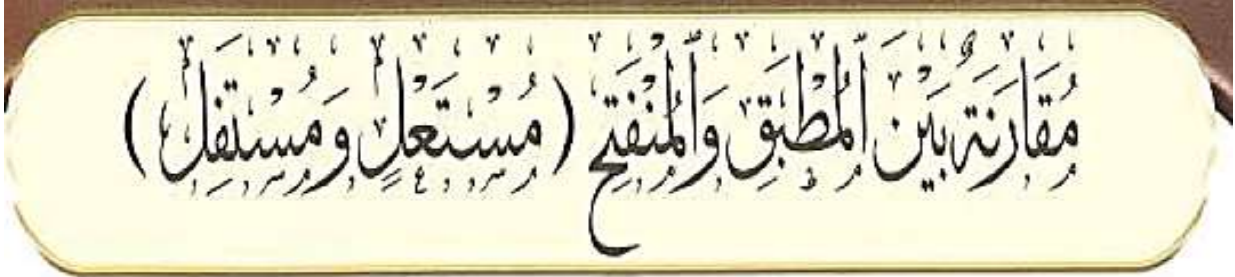 مُقَارَنَةٌ بَيْنَ ٱلْمُطْبَقِ وَٱلْمُنْفَتِحِ (مُسْتَعْلٍ وَمُسْتَفِلٍ)